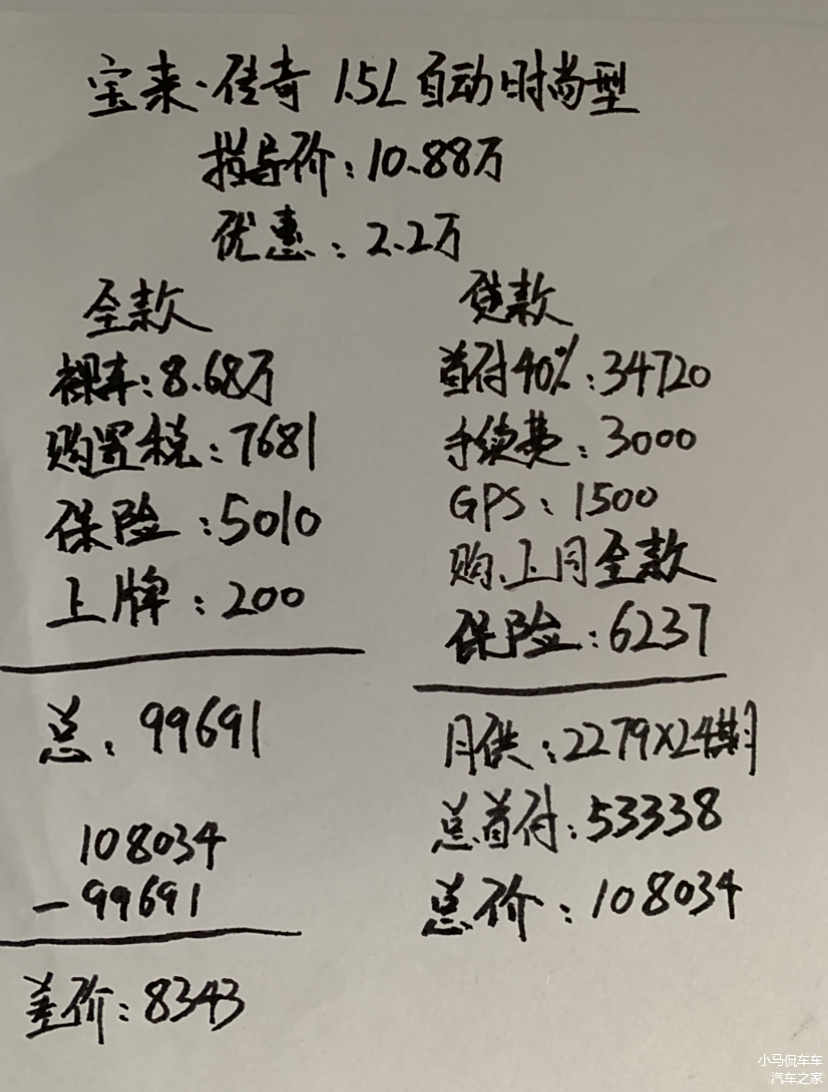 宝来·传奇 1.5L 自动时尚型
指导价：10.88万
优惠：2.2万
全款
裸车：8.68万
购置税：7681
保险：5010
上牌：200
总：99691
108034
-99691
差价：8343
贷款
首付40%：34720
手续费：3000
GPS：1500
购、上同全款
保险：6237
月供：2279×24期
总首付：53338
总价：108034
小马侃车车
汽车之家